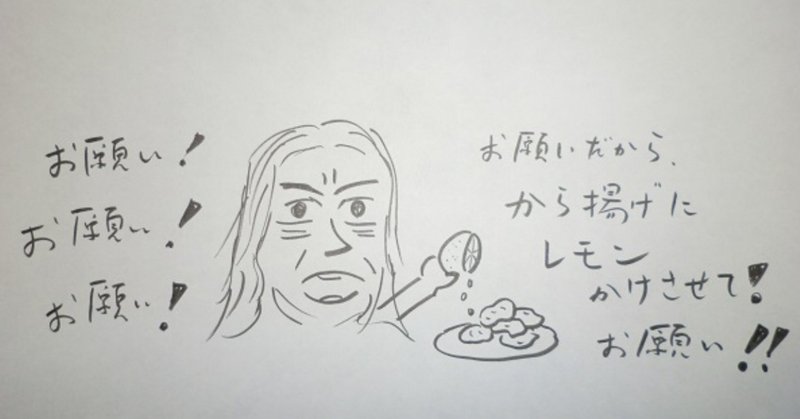 お願い!
お願い!
お願い!
お願いだから、
から揚げに
レモン
かけさせて!
お願い!!